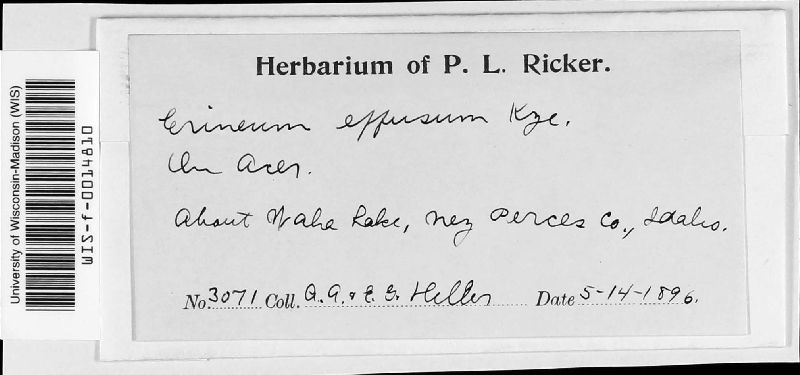 Herbarium of P. L. Ricker.
Erineum effusum Kze.
On Acer.
About Waha Lake, Nez Perces Co., Idaho.
No. 3071 Coll. A. A. & E. G. Heller Date 5-14-1896.
University of Wisconsin-Madison (WIS)
WIS-f-0014810